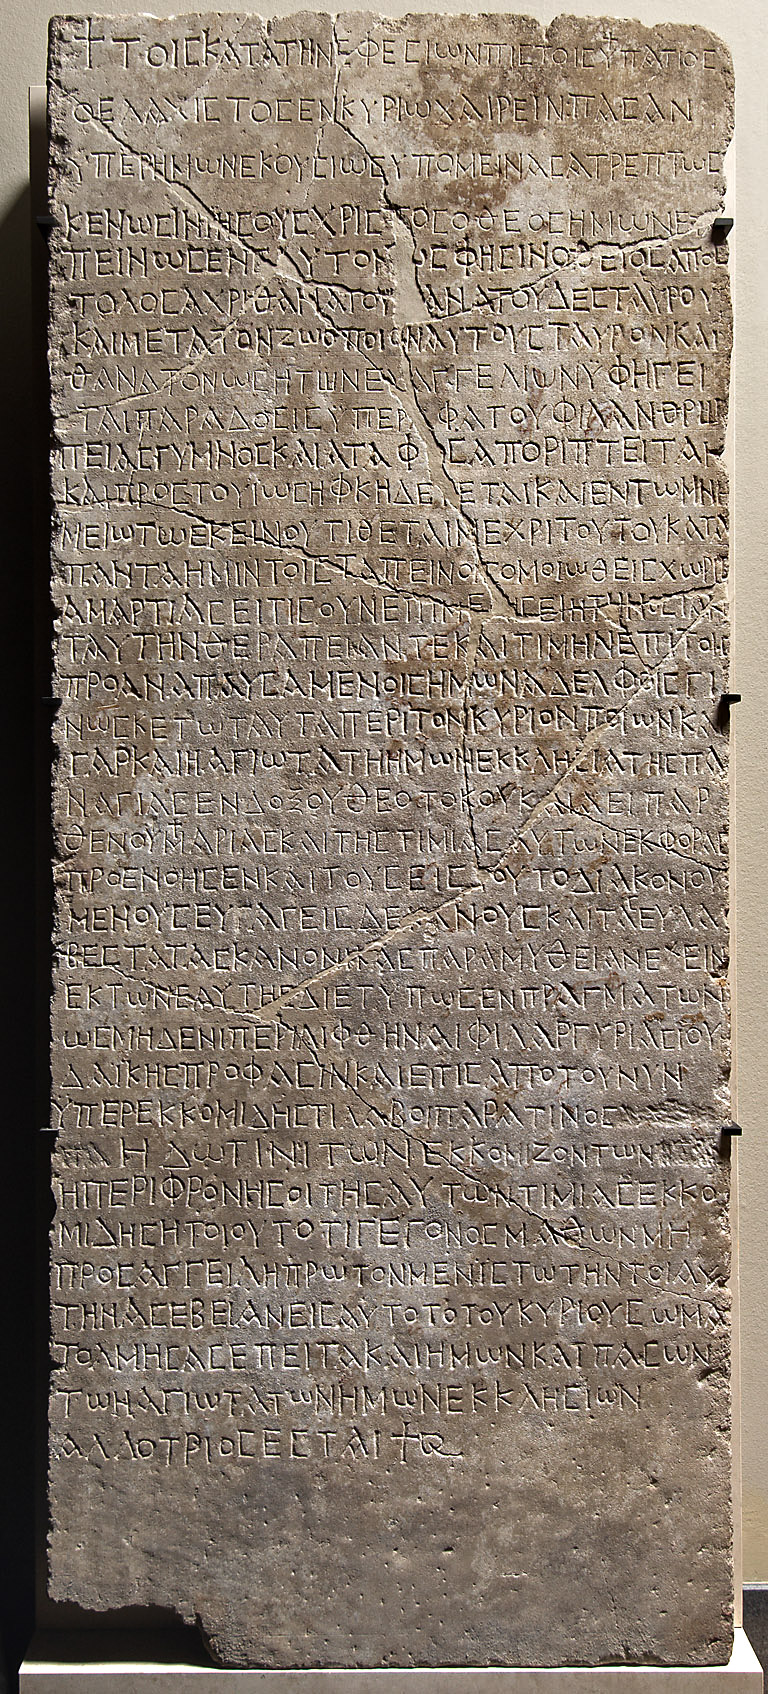 † ΤΟΙΣ ΚΑΤΑ ΤΗΝ ΕΦΕΣΙΩΝ ΠΙΣΤΟΙΣ † ΥΠΑΤΙΟΣ
Ο ΕΛΑΧΙΣΤΟΣ ΕΝ ΚΥΡΙΩ ΧΑΙΡΕΙΝ ΠΑΣΑΝ
ΥΠΕΡ ΗΜΩΝ ΕΚΟΥΣΙΩΣ ΥΠΟΜΕΙΝΑΣ ΑΤΡΕΠΤΩΣ
ΚΕΝΩΣΙΝ ΙΗΣΟΥΣ ΧΡΙΣΤΟΣ Ο ΘΕΟΣ ΗΜΩΝ ΕΤΑ
ΠΕΙΝΩΣΕΝ ΕΑΥΤΟΝ ΩΣ ΦΗΣΙΝ Ο ΘΕΙΟΣ ΑΠΟΣ
ΤΟΛΟΣ ΑΧΡΙ ΘΑΝΑΤΟΥ ΘΑΝΑΤΟΥ ΔΕ ΣΤΑΥΡΟΥ
ΚΑΙ ΜΕΤΑ ΤΟΝ ΖΩΟΠΟΙΟΝ ΑΥΤΟΥ ΣΤΑΥΡΟΝ ΚΑΙ
ΘΑΝΑΤΟΝ ΩΣ Η ΤΩΝ ΕΥΑΓΓΕΛΙΩΝ ΫΦΗΓΕΙ
ΤΑΙ ΠΑΡΑΔΟΣΙΣ ΫΠΕΡ ΑΦΑΤΟΥ ΦΙΛΑΝΘΡΩ
ΠΕΙΑΣ ΓΥΜΝΟΣ ΚΑΙ ΑΤΑΦΟΣ ΑΠΟΡΙΠΤΕΙΤΑΙ
ΚΑΙ ΠΡΟΣ ΤΟΥ ΙΩΣΗΦ ΚΗΔΕΥΕΤΑΙ ΚΑΙ ΕΝ ΤΩ ΜΝΗ
ΜΕΙΩ ΤΩ ΕΚΕΙΝΟΥ ΤΙΘΕΤΑΙ ΜΕΧΡΙ ΤΟΥΤΟΥ ΚΑΤΑ
ΠΑΝΤΑ ΗΜΙΝ ΤΟΙΣ ΤΑΠΕΙΝΟΙΣ ΟΜΟΙΩΘΕΙΣ ΧΩΡΙΣ
ΑΜΑΡΤΙΑΣ ΕΙ ΤΙΣ ΟΥΝ ΤΗΝ ΟΣΙΑΝ
ΤΑΥΤΗΝ ΘΕΡΑΠΕΙΑΝ ΤΕ ΚΑΙ ΤΙΜΗΝ ΕΠΙ ΤΟΙΣ
ΠΡΟΑΝΑΠΑΥΣΑΜΕΝΟΙΣ ΗΜΩΝ ΑΔΕΛΦΟΙΣ ΓΙ
ΝΩΣΚΕΤΩ ΤΑΥΤΑ ΠΕΡΙ ΤΟΝ ΚΥΡΙΟΝ ΠΟΙΩΝ ΚΑΙ
ΓΑΡ ΚΑΙ Η ΑΓΙΩΤΑΤΗ ΗΜΩΝ ΕΚΚΛΗΣΙΑ ΤΗΣ ΠΑ
ΝΑΓΙΑΣ ΕΝΔΟΞΟΥ ΘΕΟΤΟΚΟΥ ΚΑΙ ΑΕΙΠΑΡ
ΘΕΝΟΥ ΜΑΡΙΑΣ ΚΑΙ ΤΗΣ ΤΙΜΙΑΣ ΑΥΤΩΝ ΕΚΦΟΡΑΣ
ΠΡΟΕΝΟΗΣΕΝ ΚΑΙ ΤΟΥΣ ΕΙΣ ΤΟΥΤΟ ΔΙΑΚΟΝΟΥ
ΜΕΝΟΥΣ ΕΥΑΓΕΙΣ ΔΕΚΑΝΟΥΣ ΚΑΙ ΤΑΣ ΕΥΛΑ
ΒΕΣΤΑΤΑΣ ΚΑΝΟΝΙΚΑΣ ΠΑΡΑΜΥΘΕΙΑΝ ΕΧΕΙΝ
ΕΚ ΤΩΝ ΕΑΥΤΗΣ ΔΙΕΤΥΠΩΣΕΝ ΠΡΑΓΜΑΤΩΝ
ΩΣ ΜΗΔΕΝΙ ΠΕΡΙΛΙΦΘΗΝΑΙ ΦΙΛΑΡΓΥΡΙΑΣ ΙΟΥ
ΔΑΪΚΗΣ ΠΡΟΦΑΣΙΝ ΚΑΙ ΕΙ ΤΙΣ ΑΠΟ ΤΟΥ ΝΥΝ
ΫΠΕΡ ΕΚΚΟΜΙΔΗΣ ΤΙ ΛΑΒΟΙ ΠΑΡΑ ΤΙΝΟΣ
Η ΔΩ ΤΙΝΙ ΤΩΝ ΕΚΚΟΜΙΖΟΝΤΩΝ
Η ΠΕΡΙΦΡΟΝΗΣΟΙ ΤΗΣ ΑΥΤΩΝ ΤΙΜΙΑΣ ΕΚΚΟ
ΜΙΔΗΣ Η ΤΟΙΟΥΤΟ ΤΙ ΓΕΓΟΝΟΣ ΜΑΘΩΝ ΜΗ
ΠΡΟΣΑΓΓΕΙΛΗ ΠΡΩΤΟΝ ΜΕΝ ΪΣΤΩ ΤΗΝ ΤΟΙΑΥ
ΤΗΝ ΑΣΕΒΕΙΑΝ ΕΙΣ ΑΥΤΟ ΤΟ ΤΟΥ ΚΥΡΙΟΥ ΣΩΜΑ
ΤΟΛΜΗΣΑΣ ΕΠΕΙΤΑ ΚΑΙ ΗΜΩΝ ΚΑΙ ΠΑΣΩΝ
ΤΩΝ ΑΓΙΩΤΑΤΩΝ ΗΜΩΝ ΕΚΚΛΗΣΙΩΝ
ΑΛΛΟΤΡΙΟΣ ΕΣΤΑΙ †